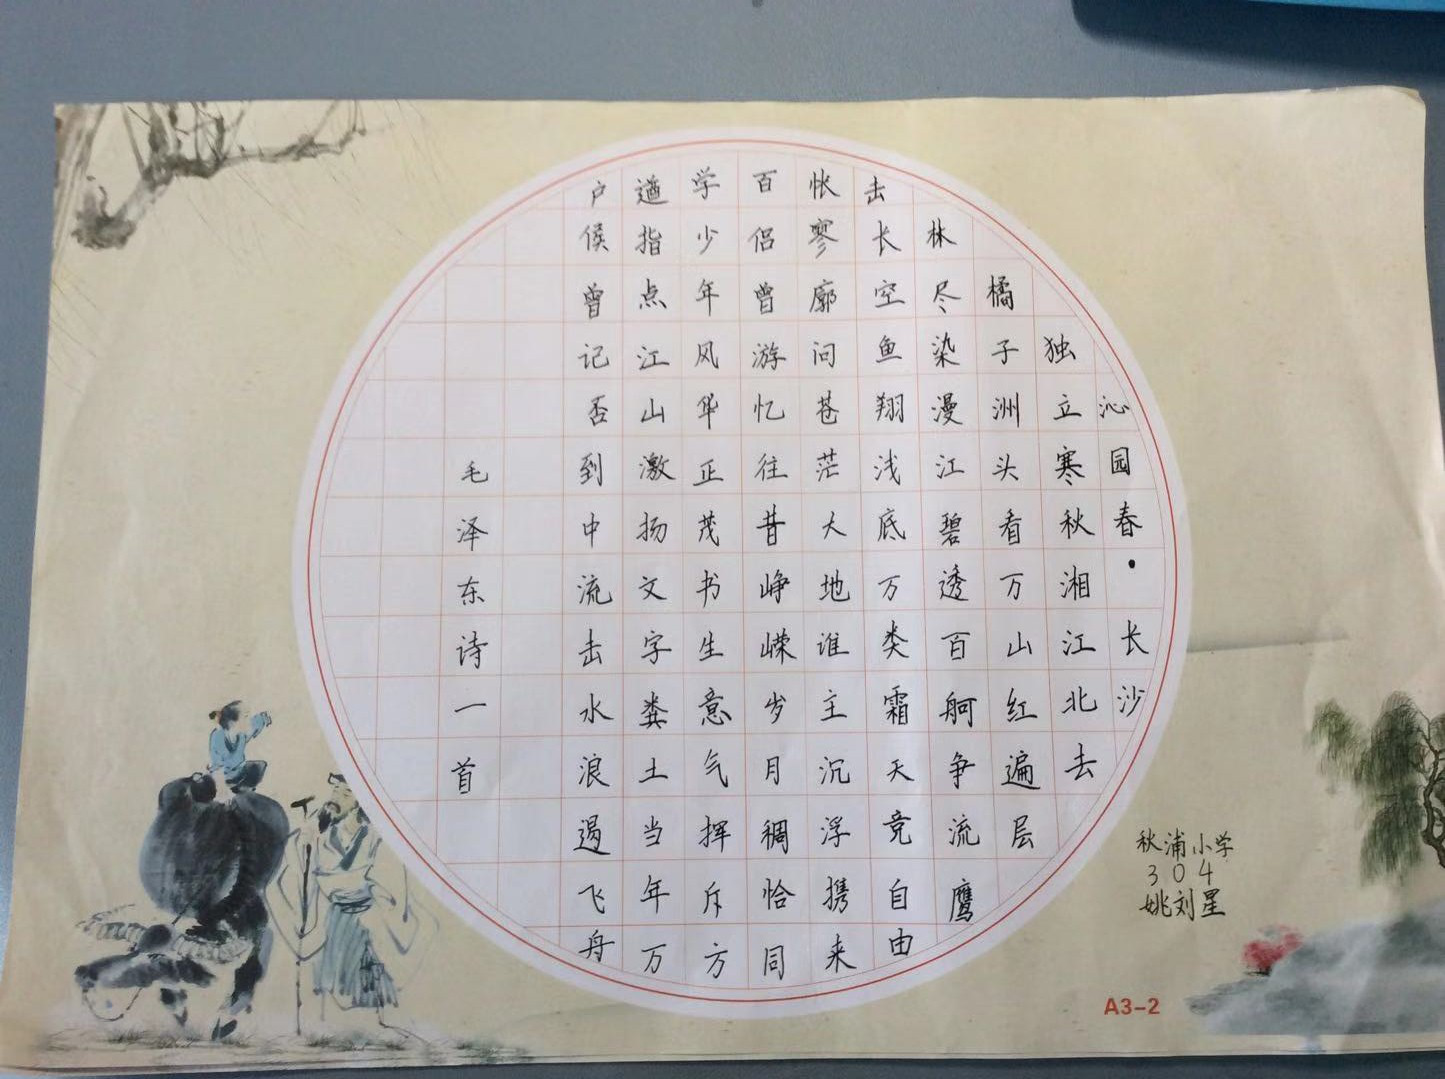 沁园春·长沙
独立寒秋湘江北去
橘子洲头看万山红遍层
林尽染漫江碧透百舸争流鹰
击长空鱼翔浅底万类霜天竞自由
怅寥廓问苍茫大地谁主沉浮携来
百侣曾游忆往昔峥嵘岁月稠恰同
学少年风华正茂书生意气挥斥方
遒指点江山激扬文字粪土当年万
户侯曾记否到中流击水浪遏飞舟
毛泽东诗一首
秋浦小学
304
姚刘星
A3-2